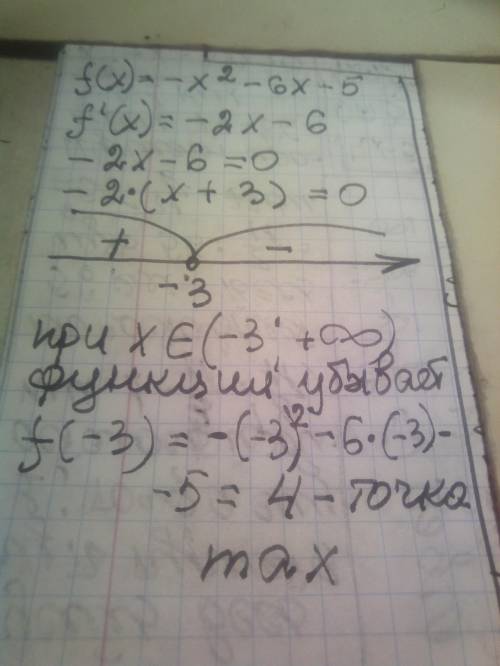 f(x) = -x² - 6x - 5
f'(x) = -2x - 6
-2x - 6 = 0
-2·(x + 3) = 0
+ -
-3
при x ∈ (-3; +∞)
функции убывает
f(-3) = -(-3)² - 6·(-3) -
-5 = 4 - точка
max